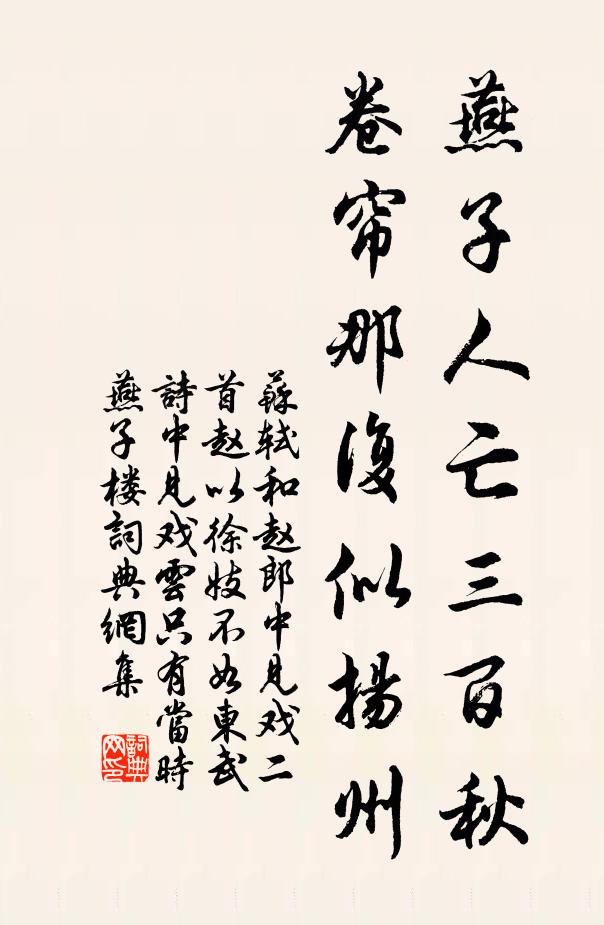 燕子人亡三百秋
卷帘那復似揚州
蘇軾和赵郎中見戏二
首赵以徐妓不如東武
詩中見戏雲只有當時
燕子楼詞典網集
詞典
网印